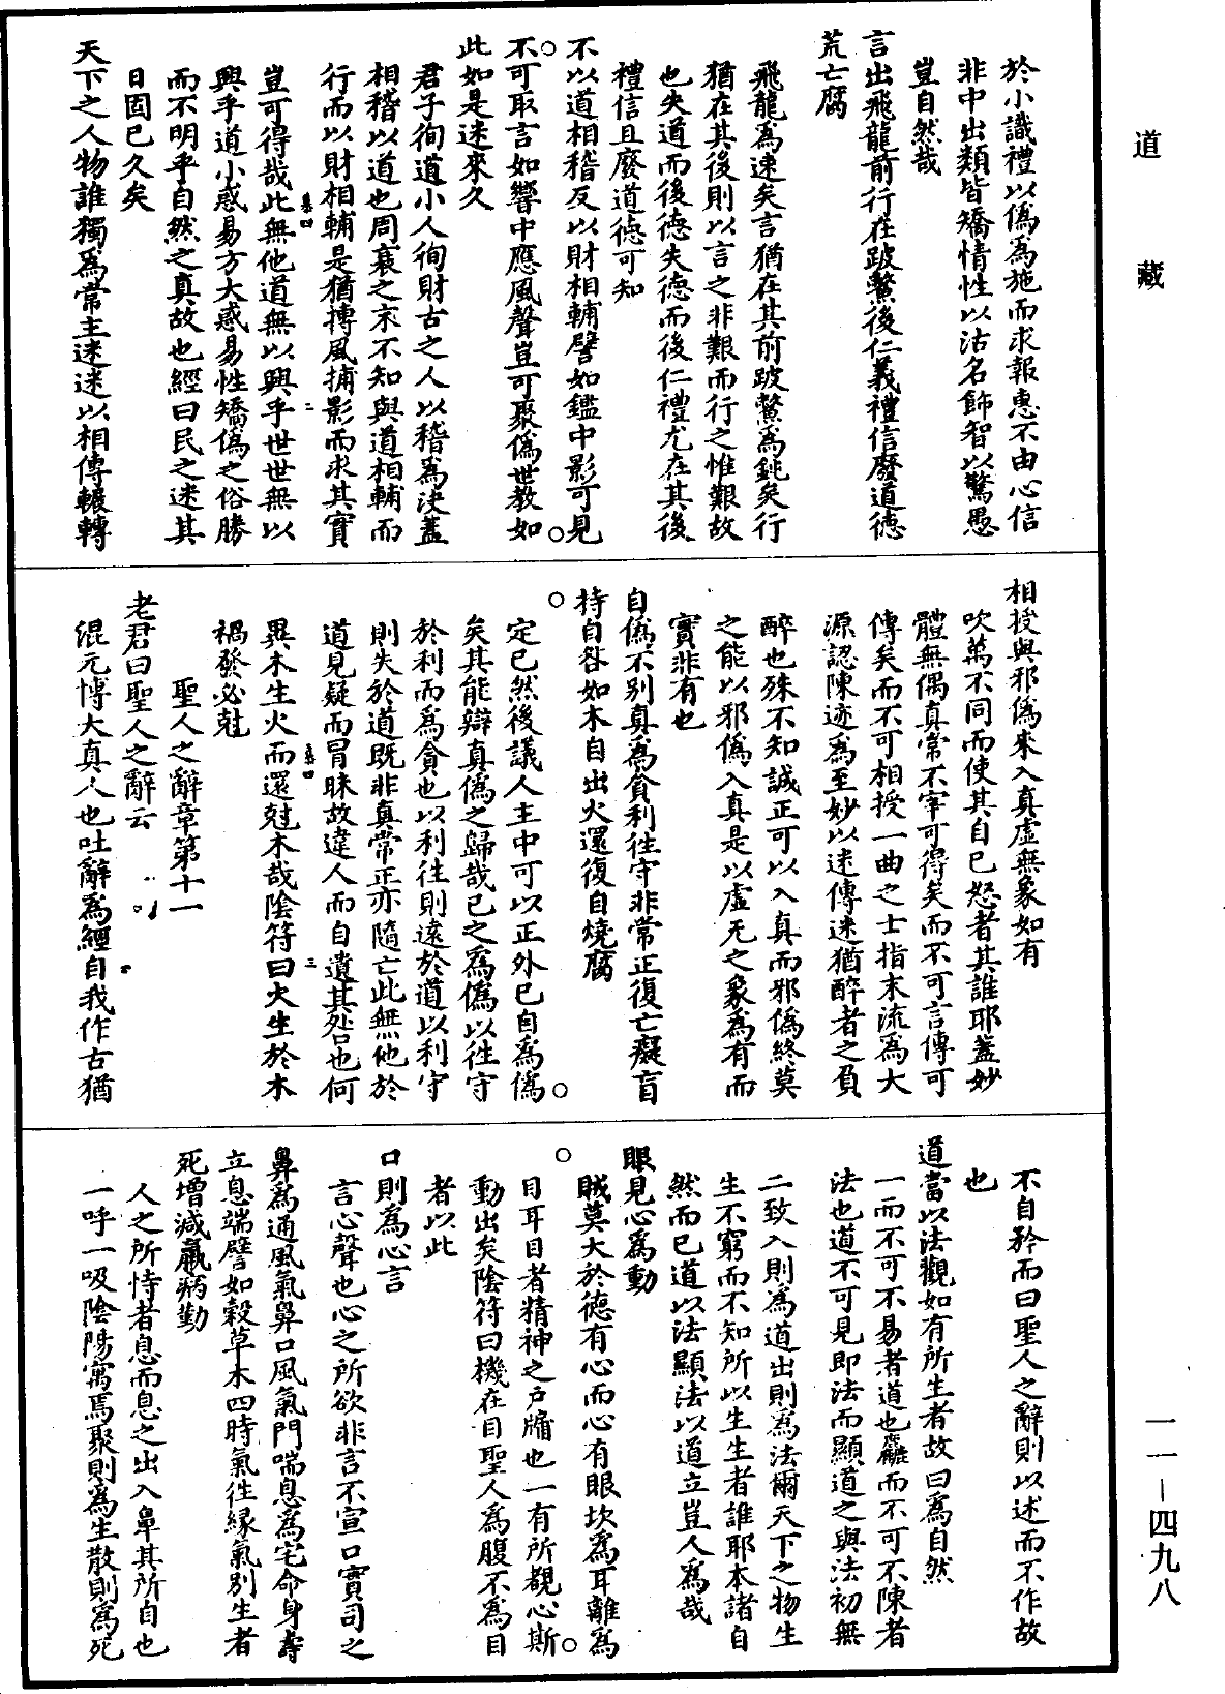 道藏
於小識禮以僞爲施而求報惠不由心信
非中出類皆矯情性以沽名飾智以驚愚
豈自然哉
言出飛龍前行在跛鱉後仁義禮信廢道德
荒亡腐
飛龍爲速矣言猶在其前跛鱉爲鈍矣行
猶在其後則以言之非艱而行之惟艱故
也失道而後德失德而後仁禮尤在其後
禮信且廢道德可知
不以道相稽反以財相輔譬如鑑中影可見
不可取言如響中應風聲豈可聚僞世教如
此如是迷來久
君子徇道小人徇財古之人以稽爲決蓋
相稽以道也周衰之末不知與道相輔而
行而以財相輔是猶摶風捕影而求其實
豈可得哉此無他道無以興乎世世無以
興乎道小惑易方大惑易性矯僞之俗勝
而不明乎自然之真故也經曰民之迷其
日固已久矣
天下之人物誰獨爲常主迷迷以相傳輾轉
相授與邪僞來入真虛無象如有
吹萬不同而使其自已怒者其誰耶蓋妙
體無偶真常不宰可得矣而不可言傳可
傳矣而不可相授一曲之士指末流爲大
源認陳迹爲至妙以迷傳迷猶醉者之負
醉也殊不知誠正可以入真而邪僞終莫
之能以邪僞入真是以虛无之象爲有而
實非有也
自僞不別真爲貪利往守非常正復亡癡盲
持自咎如木自出火還復自燒腐
定已然後議人主中可以正外已自爲僞
矣其能辯真僞之歸哉已之爲僞以往守
於利而爲貪也以利往則遠於道以利守
則失於道既非真常正亦隨亡此無他於
道見疑而冒昧故違人而自遺其咎也何
異木生火而還尅木哉陰符曰火生於木
禍發必尅
聖人之辭章第十一
老君曰聖人之辭云
混元博大真人也吐辭爲經自我作古猶
不自矜而曰聖人之辭則以述而不作故
也
道當以法觀如有所生者故曰爲自然
一而不可不易者道也麤而不可不陳者
法也道不可見即法而顯道之與法初無
二致入則爲道出則爲法爾天下之物生
生不窮而不知所以生生者誰耶本諸自
然而已道以法顯法以道立豈人爲哉
眼見心爲動
賊莫大於德有心而心有眼坎爲耳離爲
目耳目者精神之戶牖也一有所覩心斯
動出矣陰符曰機在目聖人爲腹不爲目
者以此
口則爲心言
言心聲也心之所欲非言不宣口實司之
鼻爲通風氣鼻口風氣門喘息爲宅命身壽
立息端譬如穀草木四時氣往緣氣別生者
死增減羸病勤
人之所恃者息而息之出入鼻其所自也
一呼一吸陰陽寓焉聚則爲生散則爲死
一一－四九八